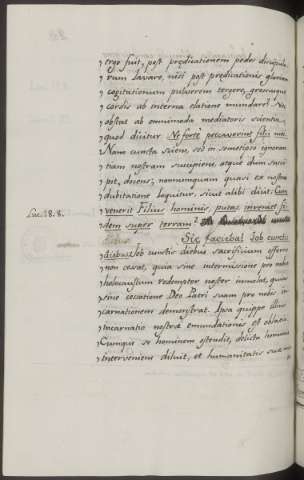 ergo fuit, post prædicationem pedes discipulo-
rum lavare, nisi post prædicationis gloriam
cogitationum pulverem tergere, gressusque
cordis ab interna elatione mundare? Nec
obstat ab omnimoda mediatoris scientia,
quod dicitur Ne forte peccaverint filii mei.
Nam cuncta sciens, sed in semetipso ignoran-
tiam nostram suscipiens, atque dum susci-
pit, docens, nonnumquam quasi ex nostra
dubitatione loquitur, sicut alibi dicit: Cum
venerit Filius hominis, putas inveniet fi-
Luc. 18. 8.
dem super terram?
Sic faciebat Job cunctis
diebus. Job cunctis diebus sacrificium offerre
non cessat, quia sine intermissione pro nobis
holocaustum redemptor noster immolat, qui
sine cessatione Deo Patri suam pro nobis in-
carnationem demonstrat. Ipsa quippe illius
incarnatio nostræ emundationis est oblatio.
Cumque se hominem ostendit, delicta hominis
interveniens diluit, et humanitatis suæ